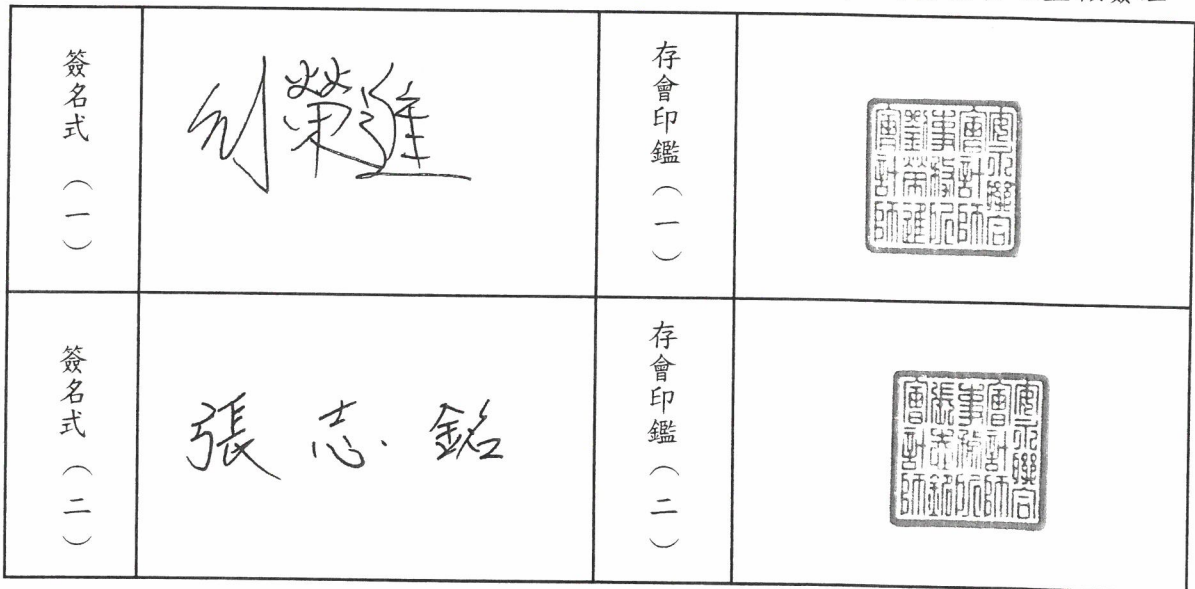 簽名式（一）
劉榮進
存會印鑑（一）
安永聯合
會計師
事務所
劉榮進
會計師
簽名式（二）
張志銘
存會印鑑（二）
安永聯合
會計師
事務所
張志銘
會計師